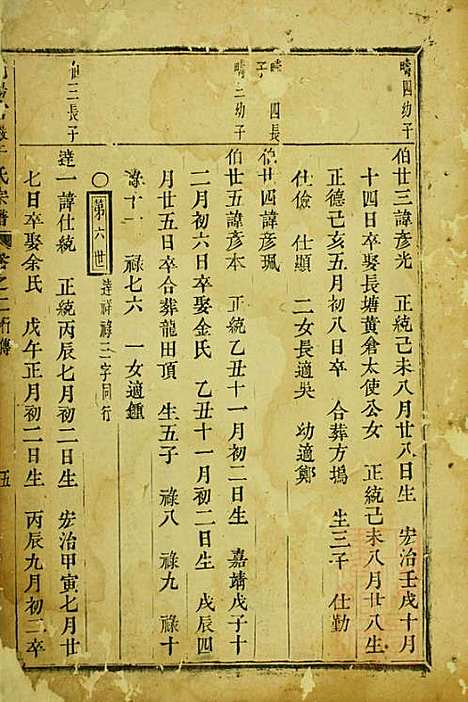 疇四幼子
伯廿三諱彥光 正統己未八月廿八日生 宏治壬戌十月
十四日卒娶長塘黃倉太使公女 正統己未八月廿八生
正德己亥五月初八日卒 合葬方塢 生三子 仕勤
仕儉 仕顯 二女長適吳 幼適鄭
疇四長子
伯廿四諱彥珮
疇二幼子
伯廿五諱彥本 正統乙丑十一月初二日生 嘉靖戊子十
二月初六日卒娶金氏 乙丑十一月初二日生 戊辰四
月廿五日卒合葬龍田頂 生五子 祿八 祿九 祿十
祿十一 祿七六 一女適鍾
○第六世 達祥諄三字同行
三長子
達一諱仕統 正統丙辰七月初二日生 宏治甲寅七月廿
七日卒娶余氏 戊午正月初二日生 丙辰九月初二卒
氏宗譜 卷之二 行傳 五